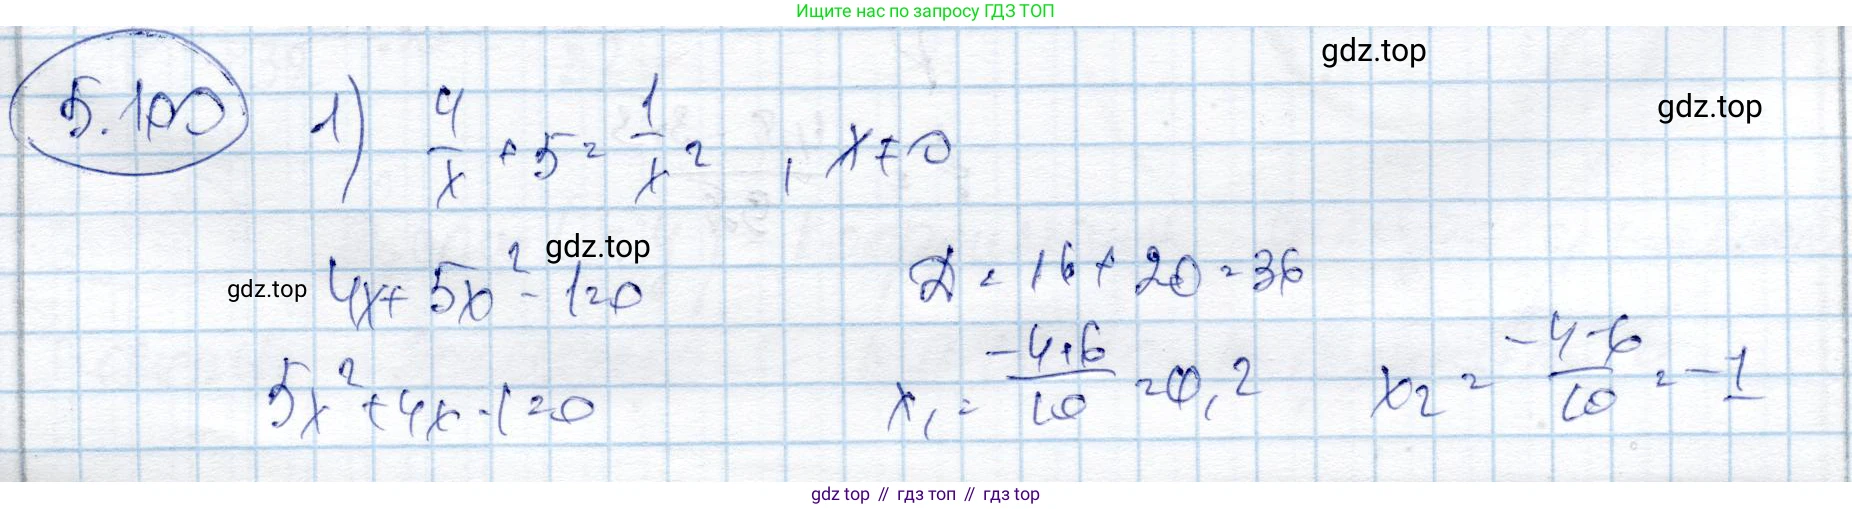 Ищите нас по запросу ГДЗ ТОП
gdz.top
gdz.top
5.100 1) 4/x + 5 = 1/x², x ≠ 0
gdz.top
gdz.top 4x + 5x² - 1 = 0 D = 16 + 20 = 36
5x² + 4x - 1 = 0 x₁ = (-4+6)/10 = 0,2 x₂ = (-4-6)/10 = -1
gdz top // гдз топ // gdz top